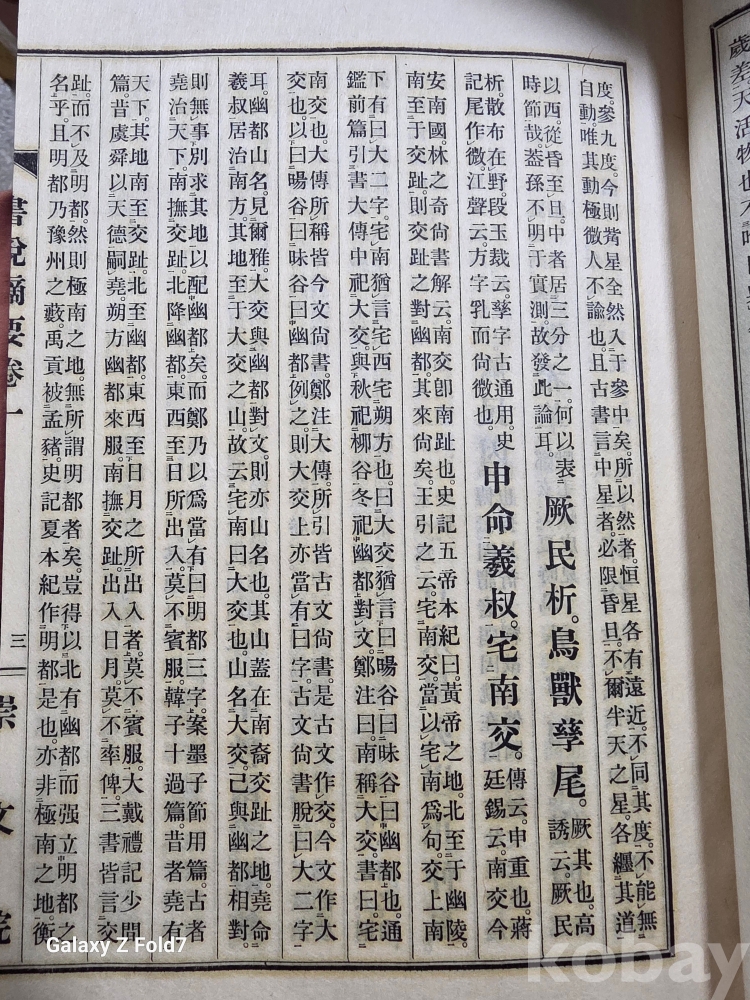 歲差天活物也
度。參九度。今則觜星全然入于參中矣。所以然者。恒星各有遠近。不同其度。不能無
自動。唯其動極微。人不諭也。且古書言中星者。必限昏旦。不爾半天之星。各纏其道
以西。從昏至旦。中者居三分之一。何以表
時節哉。蓋孫不明于實測。故發此論耳。
厥民析。鳥獸孳尾。
厥其也。高
誘云。厥民
析。散布在野。段玉裁云。孳字古通用。史
記尾作微。江聲云。方字乳而尚微也。
申命羲叔。宅南交。
傳云。申重也。蔣
廷錫云。南交今
安南國。林之奇尚書解云。南交卽南趾也。史記五帝本紀曰。黃帝之地。北至于幽陵。
南至于交趾。則交趾之對幽都。其來尚矣。王引之云。宅南交。當以宅南爲句。交上南
下有曰大二字。宅南猶言宅西宅朔方也。曰大交猶言曰暘谷曰昧谷曰幽都也。通
鑑前篇引書大傳中祀大交。與秋祀柳谷。冬祀幽都對文。鄭注曰。南稱大交。書曰。宅
南交也。大傳所稱皆今文尚書。鄭注大傳。所引皆古文尚書。是古文作交。今文作大
交也。以曰暘谷曰昧谷曰幽都例之。則大交上亦當有曰字。古文尚書脫曰大二字
耳。幽都山名。見爾雅。大交與幽都對文。則亦山名也。其山蓋在南裔交趾之地。堯命
羲叔居治南方。其地至于大交之山。故云宅南曰大交也。山名大交。己與幽都相對。
則無事別求其地以配幽都矣。而鄭乃以爲當有曰明都三字。案墨子節用篇。古者
堯治天下。南撫交趾。北降幽都。東西至日所出入。莫不賓服。韓子十過篇。昔者堯有
天下。其地南至交趾。北至幽都。東西至日月之所出入者。莫不賓服。大戴禮記少閒
篇。昔虞舜以天德嗣堯。朔方幽都來服。南撫交趾。出入日月。莫不率俾。三書皆言交
趾。而不及明都。然則極南之地。無所謂明都者矣。豈得以北有幽都而强立明都之
名乎。且明都乃豫州之藪。禹貢被孟豬。史記夏本紀作明都。是也。亦非極南之地。衡
書說摘要卷一
三
崇文院
Galaxy Z Fold7
kobay